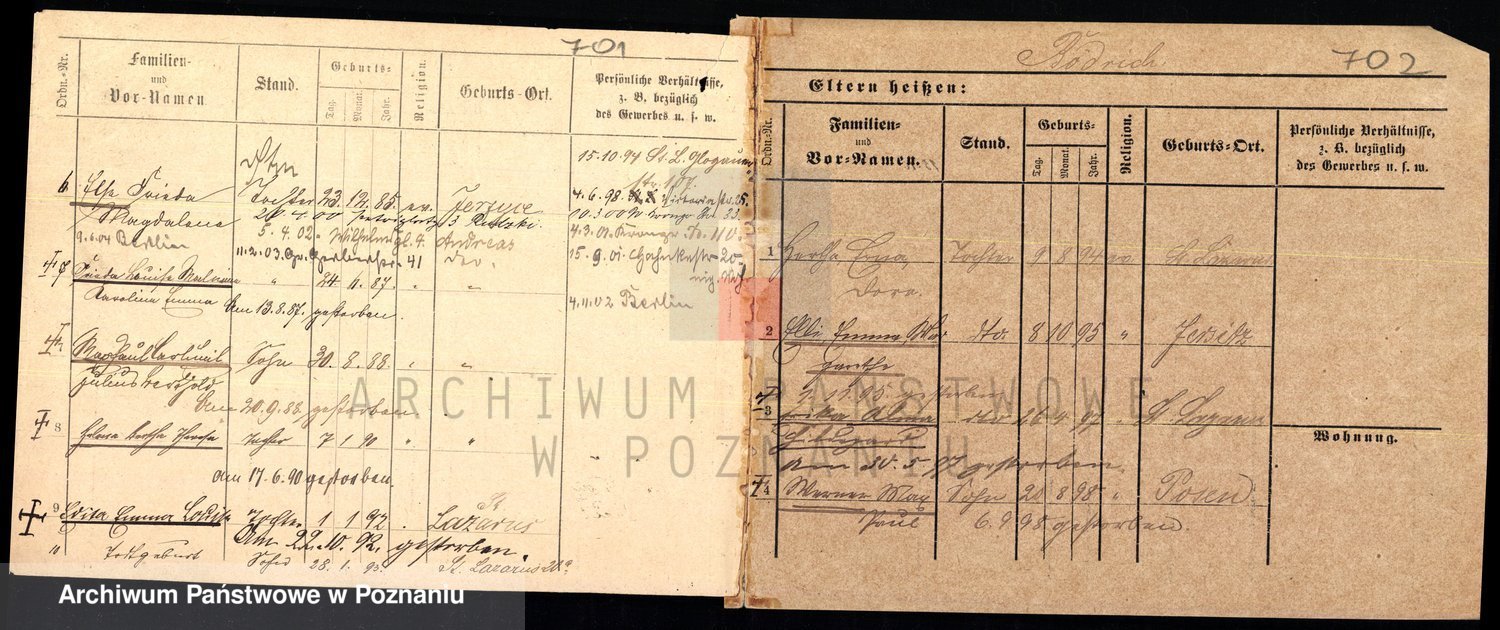 701
Ordn.-Nr.
Familien-
und
Vor-Namen.
Stand.
Geburts-
Tag.
Monat.
Jahr.
Religion.
Geburts-Ort.
Persönliche Verhältnisse,
z. B. bezüglich
des Gewerbes u. s. w.
15.10.94 St. L. Glogauer
6 Else Frieda Tochter 23. 12. 85. ev. Jersyce 4.6.98
Magdalene 4.00 10.3.00
9.6.04 Berlin 5.4.02 Wilhelmspl. 4. Andreas 4.3.01
11.2.03 Gr. Gerberstr. 41 15.9.01
7 Frieda Louise Malwine " 24 6. 87. " "
Karoline Emma am 13.8.87. gestorben. 4.11.02 Berlin
Max Paul Carl Emil Sohn 30. 8. 88. " "
Julius Berthold
am 20.9.88 gestorben
8 Helene Bertha Therese Tochter 7 1. 90 " "
am 17.6.90 gestorben.
9 Edita Emma Tochter 1 1. 92. St. Lazarus
Am 22.10.92. gestorben.
10 Todtgeburt Sohn 28. 1. 93. St. Lazarus
702
Bödrich
Eltern heißen:
Ordn.-Nr.
Familien-
und
Vor-Namen.
Stand.
Geburts-
Tag.
Monat.
Jahr.
Religion.
Geburts-Ort.
Persönliche Verhältnisse,
z. B. bezüglich
des Gewerbes u. s. w.
1 Hertha Erna Tochter 9 8 94 ev St Lazarus
Dora.
2 Elli Emma dto. 8 10 95 " Jersitz
9.11.95 gestorben
3 Erika dto 26 4 97 "
am 30.5.97 gestorben
4 Werner Max Sohn 20 8 98 " Posen
Paul 6.9.98 gestorben.
Wohnung.
ARCHIWUM PAŃSTWOWE
W POZNANIU
Archiwum Państwowe w Poznaniu